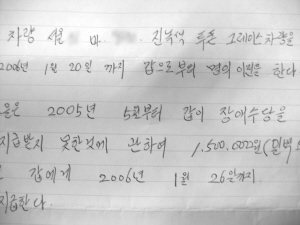 차량 서울 마 진녹색 투톤 그레이스차량을
2006년 1월 20일 까지 갑으로부터 명의 이전을 한다
을은 2005년 5月부터 갑이 장애수당을
지급받지 못한것에 관하여 1,500,000원(일백
갑에게 2006년 1월 26일까지
지급한다.